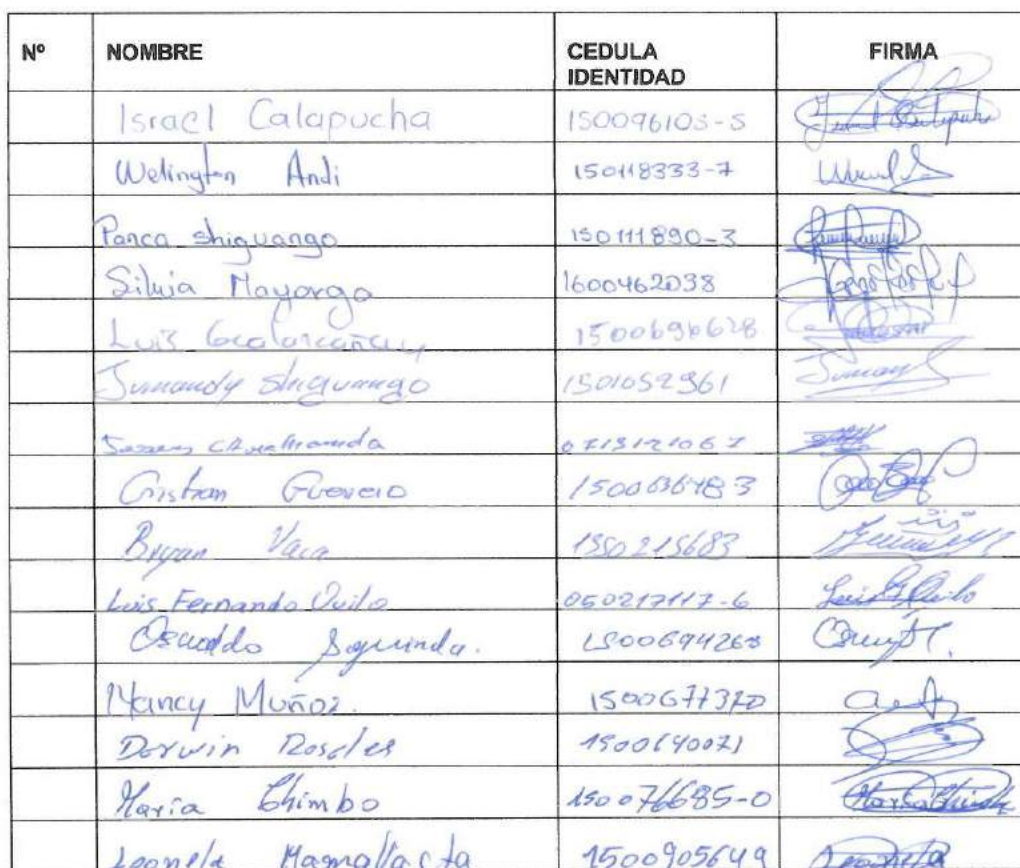 Nº NOMBRE CEDULA IDENTIDAD FIRMA
Israel Calapucha 150096103-5
Welington Andi 150118333-7
Panca shiguango 150111890-3
Silvia Mayorga 1600462038
Luis 1500696628
Jumandy Shiguango 1501052961
Cristian Guerrero 1500636483
Bryan Vaca 1550215683
Luis Fernando Quilo 050217117-6 Luis F Quilo
Oswaldo 1500694268
Nancy Muñoz. 1500677370
Darwin Rosales 1500640071
Maria Chimbo 150076685-0
Leonela Mamallacta 1500905649